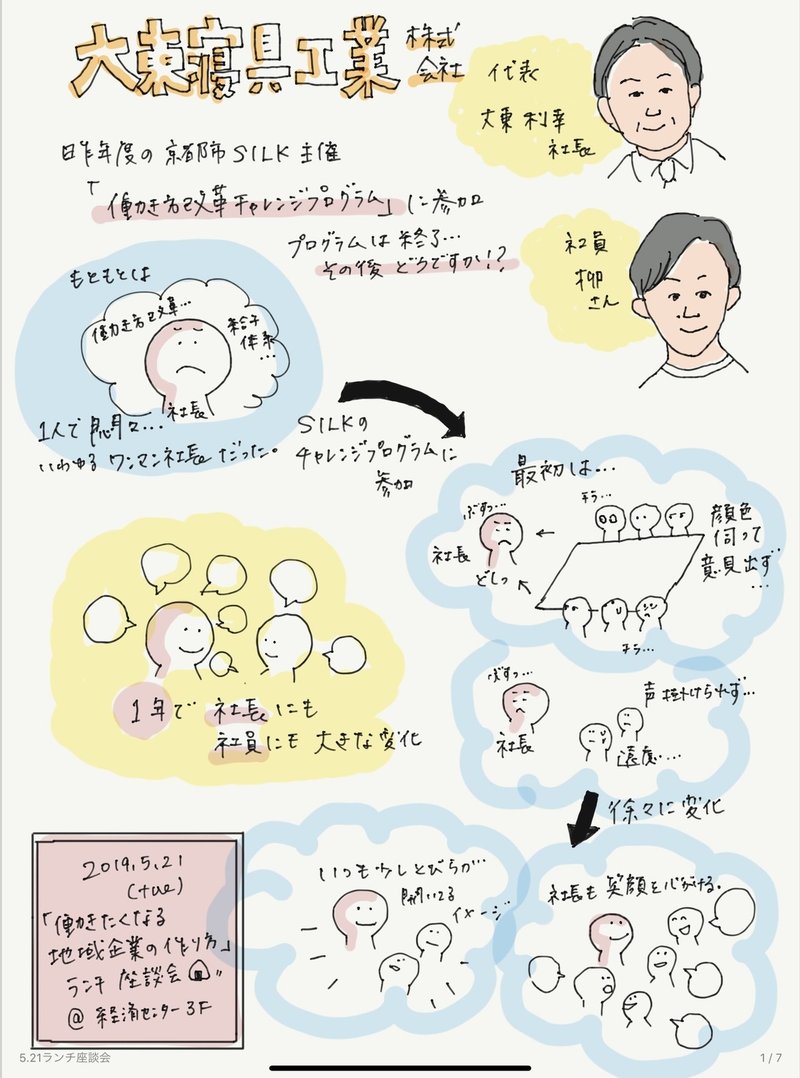 大東寝具工業
株式
会社
代表
大東 利幸
社長
昨年度の 京都市SILK 主催
「働き方改革チャレンジプログラム」に参加
プログラムは終了…
その後 どうですか!?
社員
柳
さん
もともとは
働き方改革…
給与
体系
…
社長
1人で 悶々…
いわゆる ワンマン社長だった。
SILKの
チャレンジプログラムに
参加
最初は…
ぶすっ…
社長
どしっ
チラ…
チラ…
顔色
伺って
意見出ず
…
ぶすっ…
社長
声掛けられず…
遠慮…
徐々に変化
1年で 社長にも
社員にも 大きな変化
いつも少しとびらが…
開いてる
イメージ
社長も 笑顔を心がける.
2019.5.21
(tue)
「働きたくなる
地域企業の作り方」
ランチ 座談会
@ 経済センター3F
5.21ランチ座談会
1 / 7